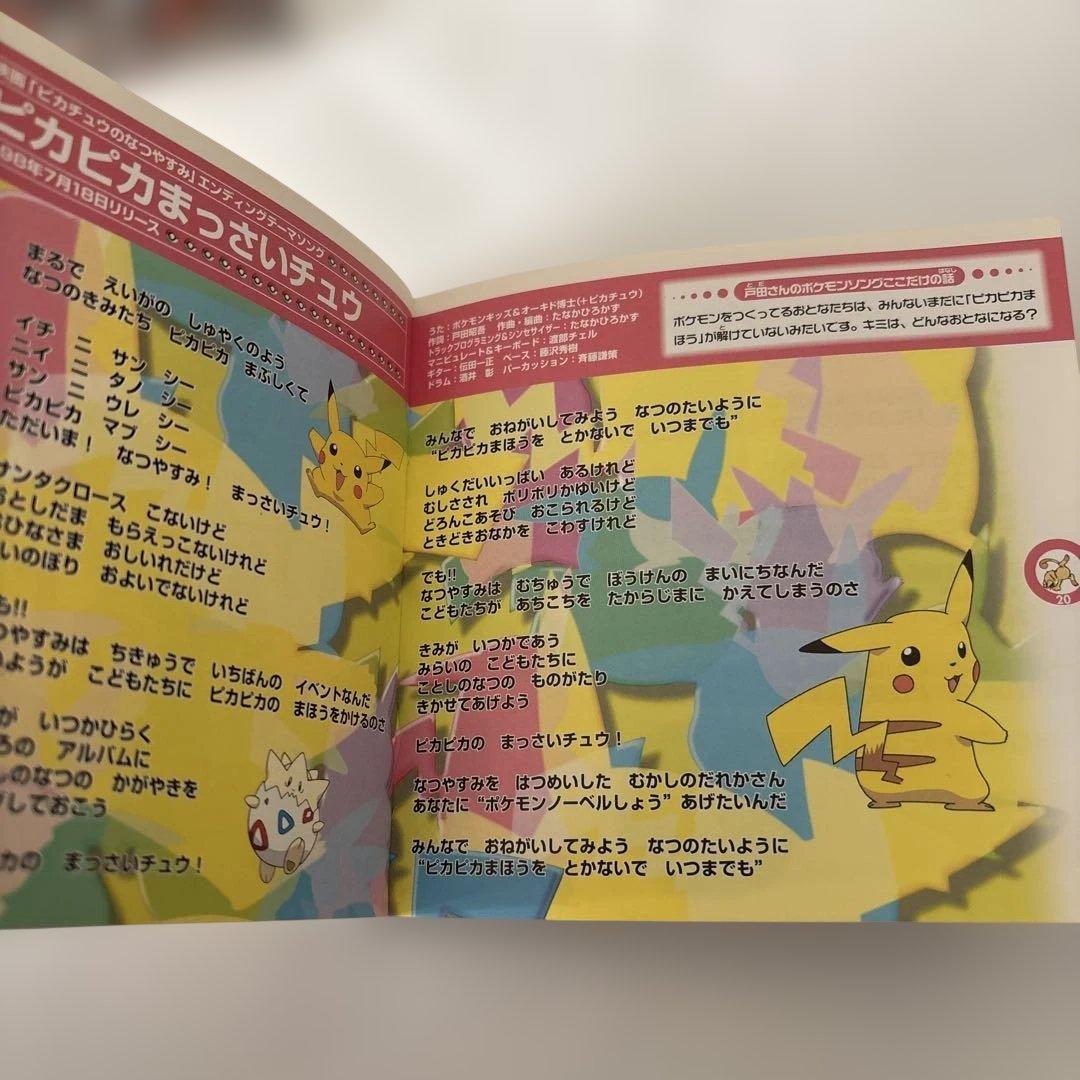 映画「ピカチュウのなつやすみ」エンディングテーマソング
ピカピカまっさいチュウ
98年7月18日リリース
まるで えいがの しゅやくのよう
なつのきみたち ピカピカ まぶしくて
イチ ニ サン シー
ニイ ニ タノ シー
サン ニ ウレ シー
ピカピカ マブ シー
ただいま! なつやすみ! まっさいチュウ!
サンタクロース こないけど
おとしだま もらえっこないけれど
おひなさま おしいれだけど
いのぼり およいでないけれど
も!!
つやすみは ちきゅうで いちばんの イベントなんだ
のようが こどもたちに ピカピカの まほうをかけるのさ
が いつかひらく
ろの アルバムに
しのなつの かがやきを
しておこう
カの まっさいチュウ!
うた:ポケモンキッズ&オーキド博士(+ピカチュウ)
作詞:戸田昭吾 作曲・編曲:たなかひろかず
トラックプログラミング&シンセサイザー:たなかひろかず
マニピュレート&キーボード:渡部チェル
ギター:伝田一正 ベース:藤沢秀樹
ドラム:酒井 彰 パーカッション:斉藤謙策
戸田さんのポケモンソングここだけの話
ポケモンをつくってるおとなたちは、みんないまだに「ピカピカま
ほう」が解けていないみたいです。キミは、どんなおとなになる?
みんなで おねがいしてみよう なつのたいように
“ピカピカまほうを とかないで いつまでも”
しゅくだいいっぱい あるけれど
むしさされ ポリポリかゆいけど
どろんこあそび おこられるけど
ときどきおなかを こわすけれど
でも!!
なつやすみは むちゅうで ぼうけんの まいにちなんだ
こどもたちが あちこちを たからじまに かえてしまうのさ
きみが いつかであう
みらいの こどもたちに
ことしのなつの ものがたり
きかせてあげよう
ピカピカの まっさいチュウ!
なつやすみを はつめいした むかしのだれかさん
あなたに “ポケモンノーベルしょう” あげたいんだ
みんなで おねがいしてみよう なつのたいように
“ピカピカまほうを とかないで いつまでも”
20